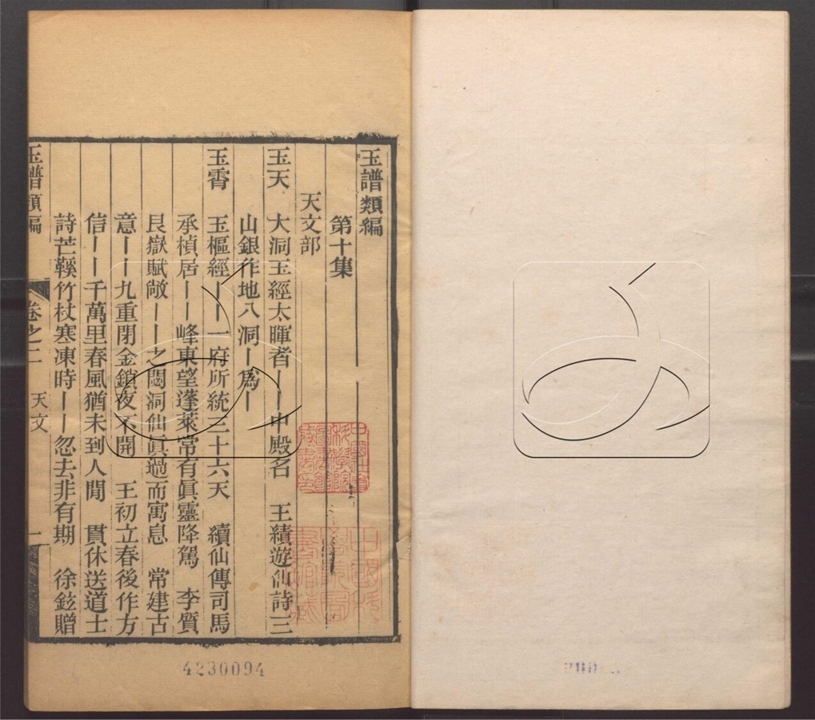 玉譜類編
第十集
天文部
玉天　大洞玉經太暉者｜｜中殿名　王績遊仙詩三
山銀作地八洞｜為｜
玉霄　玉樞經｜｜一府所統三十六天　續仙傳司馬
承楨居｜｜峰東望蓬萊常有眞靈降駕　李質
艮嶽賦敞｜｜之閟洞仙眞過而寓息　常建古
意｜｜九重閉金鎖夜不開　王初立春後作方
信｜｜千萬里春風猶未到人間　貫休送道士
詩芒鞵竹杖寒凍時｜｜忽去非有期　徐鉉贈
玉譜類編　卷之二　天文　一
4230094